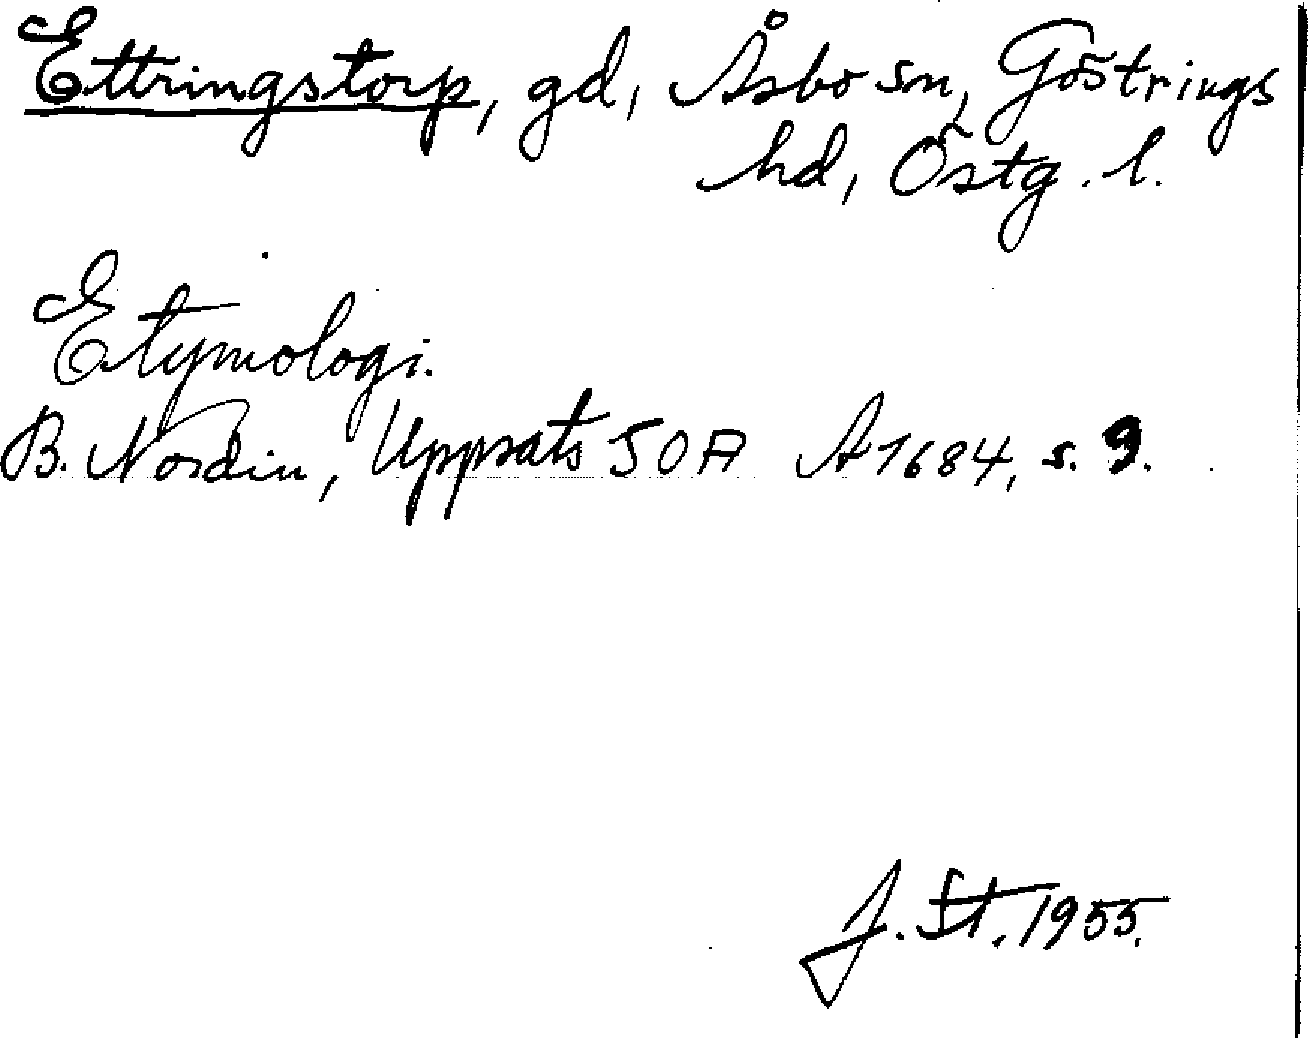 Ettringstorp, gd, Åsbo sn, Göstrings
hd, Östg. l.
Etymologi.
B. Nordin, Uppsats SOA A1684, s. 9.
J. St. 1955.